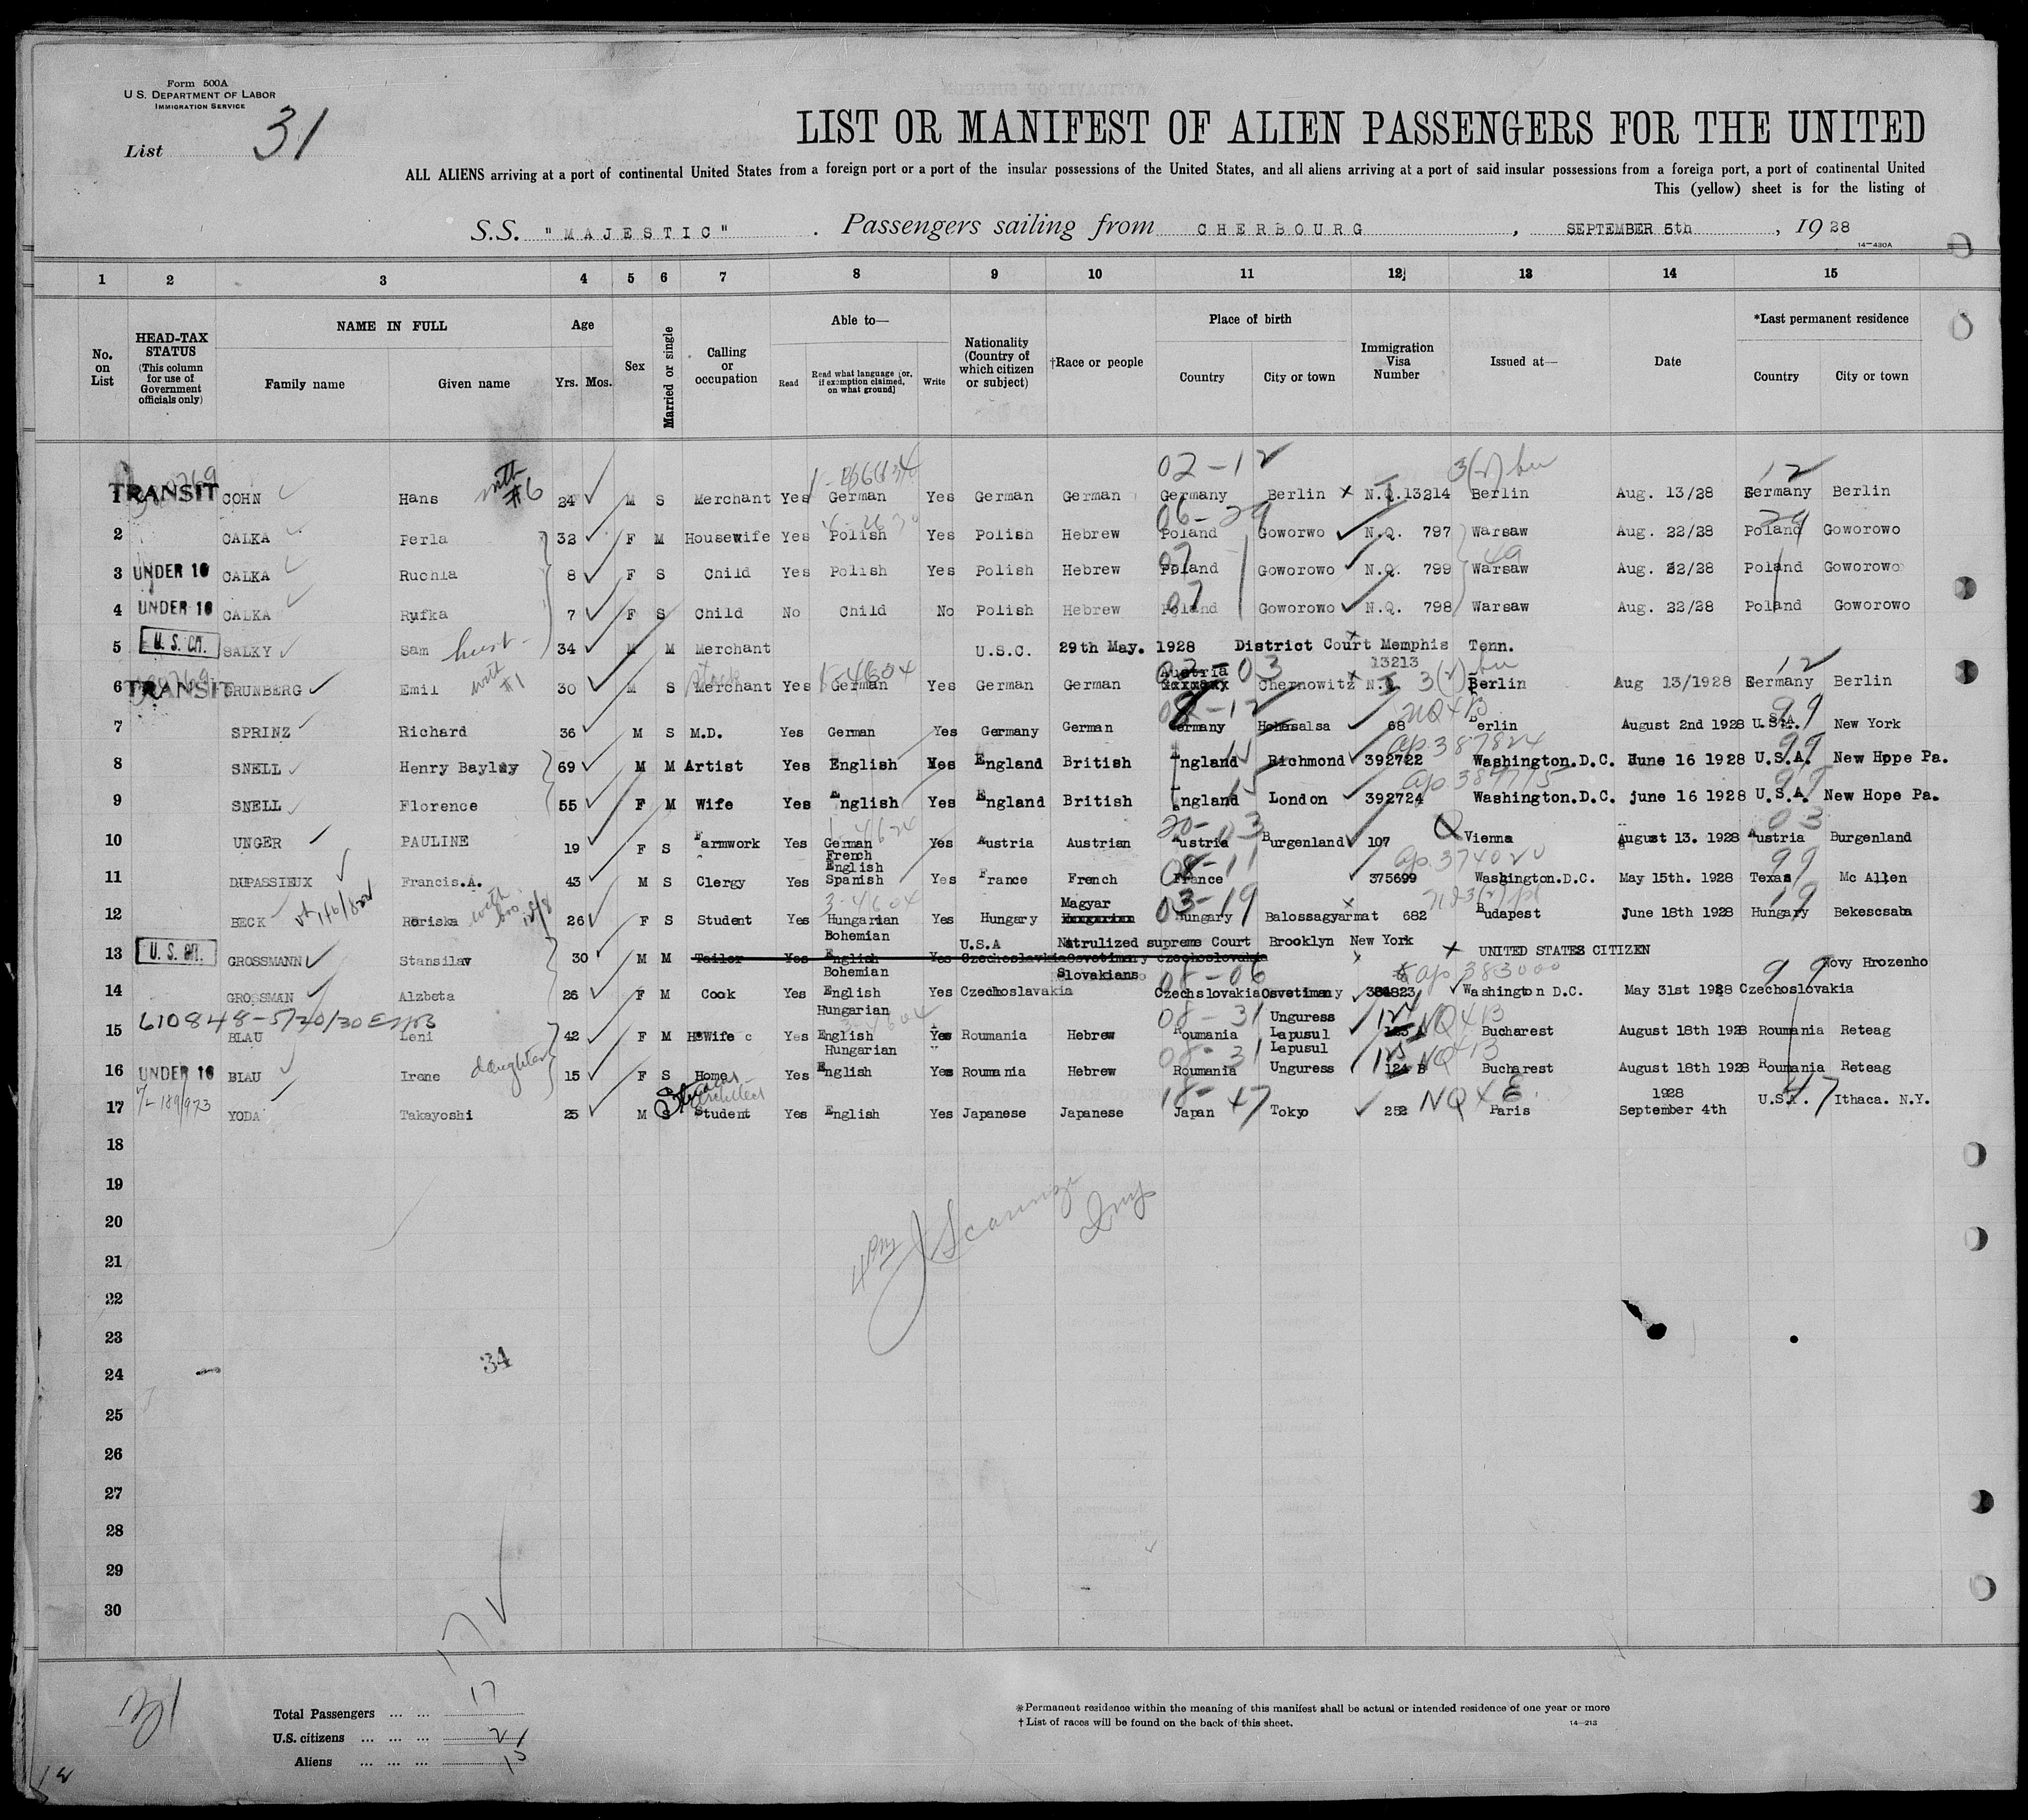 Form 500A
U. S. DEPARTMENT OF LABOR
IMMIGRATION SERVICE
List 31
LIST OR MANIFEST OF ALIEN PASSENGERS FOR THE UNITED
ALL ALIENS arriving at a port of continental United States from a foreign port or a port of the insular possessions of the United States, and all aliens arriving at a port of said insular possessions from a foreign port, a port of continental United
This (yellow) sheet is for the listing of
S.S. "MAJESTIC" . Passengers sailing from CHERBOURG , SEPTEMBER 5th , 1928
14—430A
1 2 3 4 5 6 7 8 9 10 11 12 13 14 15
No. on List
HEAD-TAX STATUS (This column for use of Government officials only)
NAME IN FULL Family name Given name
Age Yrs. Mos.
Sex
Married or single
Calling or occupation
Able to— Read Read what language [or, if exemption claimed, on what ground] Write
Nationality (Country of which citizen or subject)
†Race or people
Place of birth Country City or town
Immigration Visa Number
Issued at—
Date
*Last permanent residence Country City or town
02-12 12
1 TRANSIT COHN Hans with #6 24 M S Merchant Yes German Yes German German Germany Berlin N.Q.13214 Berlin Aug. 13/28 Germany Berlin
06-29 29
2 CALKA Perla 32 F M Housewife Yes Polish Yes Polish Hebrew Poland Goworwo N.Q. 797 Warsaw Aug. 22/28 Poland Goworowo
3 UNDER 16 CALKA Ruchla 8 F S Child Yes Polish Yes Polish Hebrew Poland Goworowo N.Q. 799 Warsaw Aug. 22/28 Poland Goworowo
4 UNDER 16 CALKA Ryfka 7 F S Child No Child No Polish Hebrew Poland Goworowo N.Q. 798 Warsaw Aug. 22/28 Poland Goworowo
5 U. S. CIT. SALKY Sam 34 M M Merchant U.S.C. 29th May. 1928 District Court Memphis Tenn.
Austria 13213
6 TRANSIT GRUNBERG Emil with #1 30 M S Merchant Yes German Yes German German Chernowitz Berlin Aug 13/1928 Germany Berlin
7 SPRINZ Richard 36 M S M.D. Yes German Yes Germany German Germany Hohasalsa 68 Berlin August 2nd 1928 U.S.A. New York
8 SNELL Henry Bayley 69 M M Artist Yes English Yes England British England Richmond 392722 Washington.D.C. June 16 1928 U.S.A. New Hope Pa.
9 SNELL Florence 55 F M Wife Yes English Yes England British England London 392724 Washington.D.C. june 16 1928 U.S.A. New Hope Pa.
10 UNGER PAULINE 19 F S Farmwork Yes German Yes Austria Austrian Austria Burgenland 107 Vienna August 13. 1928 Austria Burgenland
French
English
11 DUPASSIEUX Francis.A. 43 M S Clergy Yes Spanish Yes France French France 375699 Washington.D.C. May 15th. 1928 Texas Mc Allen
Magyar
12 BECK 26 F S Student Yes Hungarian Yes Hungary Hungarian Hungary Balossagyarmat 682 Budapest June 18th 1928 Hungary Bekescsaba
Bohemian U.S.A Natrulized supreme Court Brooklyn New York UNITED STATES CITIZEN
13 U. S. CIT. GROSSMANN Stansilav 30 M M Tailor Yes English Yes Czechoslavkia Osvetimany czechoslovakia
Bohemian Slovakians 08-06 Novy Hrozenho
14 GROSSMAN Alzbeta 26 F M Cook Yes English Yes Czechoslavakia Czechslovakia Osvetimany Washington D.C. May 31st 1928 Czechoslovakia
610848-5/20/30 Hungarian 08-31 Unguress
15 BLAU Leni 42 F M HsWife Yes English Yes Roumania Hebrew Roumania Lapusul Bucharest August 18th 1928 Roumania Reteag
daughter Hungarian 08-31 Lapusul
16 UNDER 16 BLAU Irene 15 F S Home Yes English Yes Roumania Hebrew Roumania Unguress 124 B Bucharest August 18th 1928 Roumania Reteag
architect 18-47 1928 47
17 YODA Takayoshi 25 M S Student Yes English Yes Japanese Japanese Japan Tokyo 252 Paris September 4th U.S.A. Ithaca. N.Y.
18
19
20
21
22
23
24
34
25
26
27
28
29
30
17
Total Passengers ... ... 17
U.S. citizens ... ... ... 2
Aliens ... ... ... 15
*Permanent residence within the meaning of this manifest shall be actual or intended residence of one year or more
†List of races will be found on the back of this sheet.
14—213